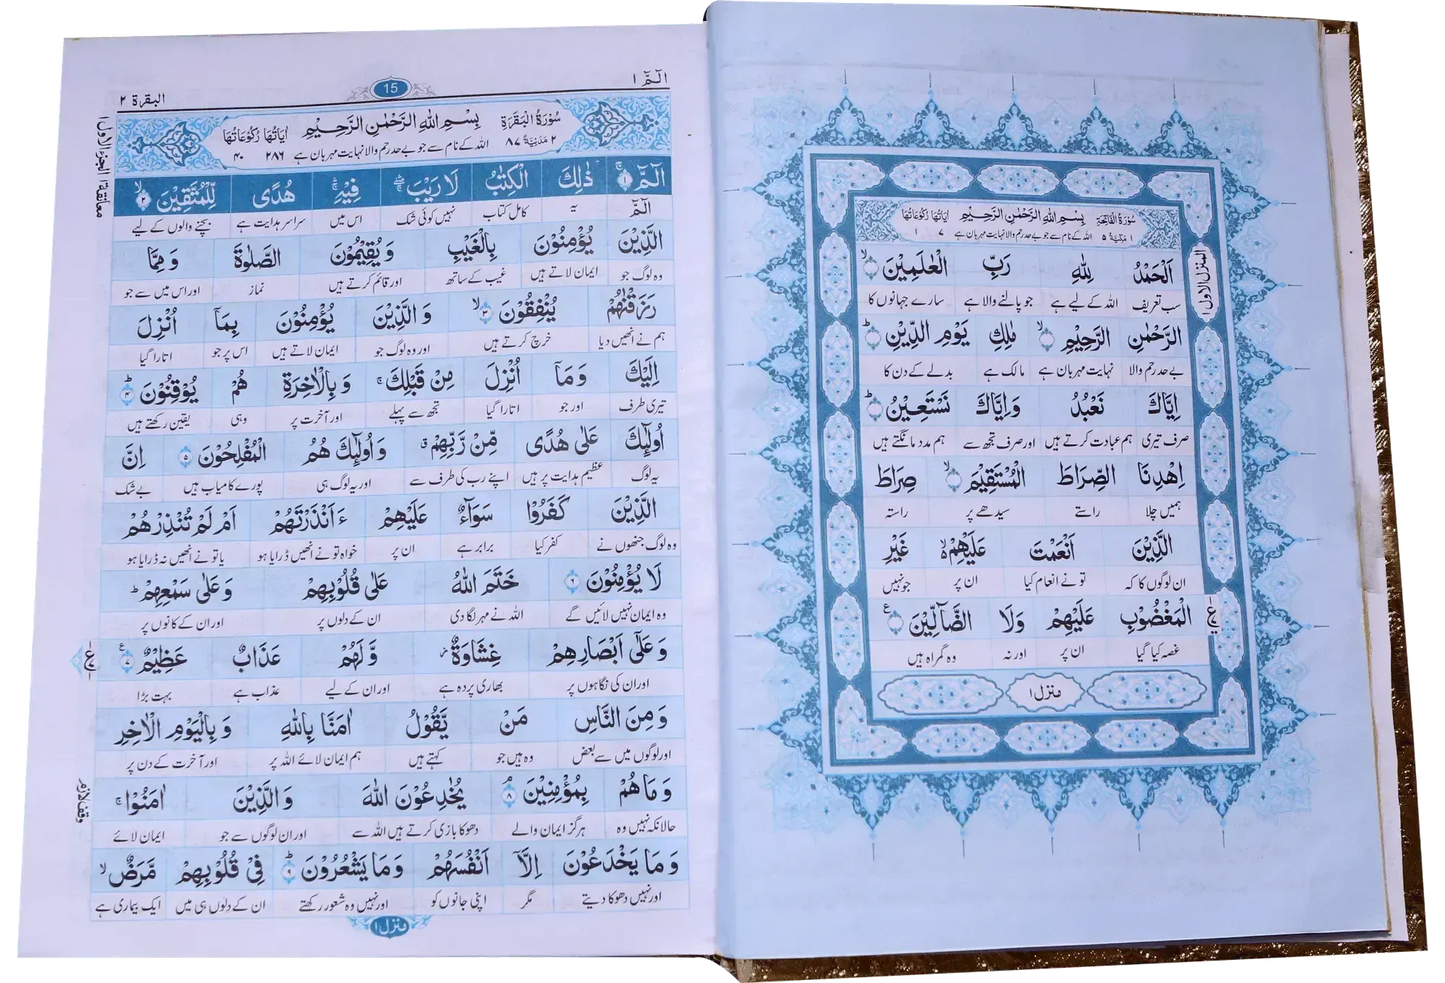 سُوْرَةُ الْفَاتِحَةِ بِسْمِ اللهِ الرَّحْمٰنِ الرَّحِيْمِ اٰيَاتُهَا رُكُوْعَاتُهَا
١ مَكِّيَّةٌ ٥ اللہ کے نام سے جو بے حد رحم والا نہایت مہربان ہے ٧ ١
المنزل الاول
اَلْحَمْدُ لِلّٰهِ رَبِّ الْعٰلَمِيْنَ
سب تعریف اللہ کے لیے ہے جو پالنے والا ہے سارے جہانوں کا
الرَّحْمٰنِ الرَّحِيْمِ مٰلِكِ يَوْمِ الدِّيْنِ
بے حد رحم والا نہایت مہربان ہے مالک ہے بدلے کے دن کا
اِيَّاكَ نَعْبُدُ وَاِيَّاكَ نَسْتَعِيْنُ
صرف تیری ہم عبادت کرتے ہیں اور صرف تجھ سے ہم مدد مانگتے ہیں
اِهْدِنَا الصِّرَاطَ الْمُسْتَقِيْمَ صِرَاطَ
ہمیں چلا راستے سیدھے پر راستہ
الَّذِيْنَ اَنْعَمْتَ عَلَيْهِمْ غَيْرِ
ان لوگوں کا کہ تو نے انعام کیا ان پر جو نہیں
الْمَغْضُوْبِ عَلَيْهِمْ وَلَا الضَّآلِّيْنَ
غصہ کیا گیا ان پر اور نہ وہ گمراہ ہیں
منزل ١
الٓمّٓ ١ 15 البقرة ٢
سُوْرَةُ الْبَقَرَةِ بِسْمِ اللهِ الرَّحْمٰنِ الرَّحِيْمِ اٰيَاتُهَا رُكُوْعَاتُهَا
٢ مَدَنِيَّةٌ ٨٧ اللہ کے نام سے جو بے حد رحم والا نہایت مہربان ہے ٢٨٦ ٤٠
معانقة ١ الجزء الاول ١
الٓمّٓ ١ ذٰلِكَ الْكِتٰبُ لَا رَيْبَ فِيْهِ هُدًى لِّلْمُتَّقِيْنَ ٢
الٓمّٓ یہ کامل کتاب نہیں کوئی شک اس میں سراسر ہدایت ہے بچنے والوں کے لیے
الَّذِيْنَ يُؤْمِنُوْنَ بِالْغَيْبِ وَ يُقِيْمُوْنَ الصَّلٰوةَ وَ مِمَّا
وہ لوگ جو ایمان لاتے ہیں غیب کے ساتھ اور قائم کرتے ہیں نماز اور اس میں سے جو
رَزَقْنٰهُمْ يُنْفِقُوْنَ ٣ وَ الَّذِيْنَ يُؤْمِنُوْنَ بِمَآ اُنْزِلَ
ہم نے انھیں دیا خرچ کرتے ہیں اور وہ لوگ جو ایمان لاتے ہیں اس پر جو اتارا گیا
اِلَيْكَ وَ مَآ اُنْزِلَ مِنْ قَبْلِكَ وَ بِالْاٰخِرَةِ هُمْ يُوْقِنُوْنَ ٤
تیری طرف اور جو اتارا گیا تجھ سے پہلے اور آخرت پر وہی یقین رکھتے ہیں
اُولٰٓئِكَ عَلٰى هُدًى مِّنْ رَّبِّهِمْ وَ اُولٰٓئِكَ هُمُ الْمُفْلِحُوْنَ ٥ اِنَّ
یہ لوگ عظیم ہدایت پر ہیں اپنے رب کی طرف سے اور یہ لوگ ہی پورے کامیاب ہیں بے شک
الَّذِيْنَ كَفَرُوْا سَوَآءٌ عَلَيْهِمْ ءَاَنْذَرْتَهُمْ اَمْ لَمْ تُنْذِرْهُمْ
وہ لوگ جنھوں نے کفر کیا برابر ہے ان پر خواہ تو نے انھیں ڈرایا ہو یا تو نے انھیں نہ ڈرایا ہو
لَا يُؤْمِنُوْنَ ٦ خَتَمَ اللهُ عَلٰى قُلُوْبِهِمْ وَ عَلٰى سَمْعِهِمْ
وہ ایمان نہیں لائیں گے اللہ نے مہر لگا دی ان کے دلوں پر اور ان کے کانوں پر
وَ عَلٰٓى اَبْصَارِهِمْ غِشَاوَةٌ وَّ لَهُمْ عَذَابٌ عَظِيْمٌ ٧
اور ان کی نگاہوں پر بھاری پردہ ہے اور ان کے لیے عذاب ہے بہت بڑا
وَ مِنَ النَّاسِ مَنْ يَّقُوْلُ اٰمَنَّا بِاللهِ وَ بِالْيَوْمِ الْاٰخِرِ
اور لوگوں میں سے بعض وہ ہیں جو کہتے ہیں ہم ایمان لائے اللہ پر اور آخرت کے دن پر
وَ مَا هُمْ بِمُؤْمِنِيْنَ ٨ يُخٰدِعُوْنَ اللهَ وَ الَّذِيْنَ اٰمَنُوْا
حالانکہ نہیں وہ ہرگز ایمان والے دھوکا بازی کرتے ہیں اللہ سے اور ان لوگوں سے جو ایمان لائے
وقف لازم
وَ مَا يَخْدَعُوْنَ اِلَّآ اَنْفُسَهُمْ وَ مَا يَشْعُرُوْنَ ٩ فِيْ قُلُوْبِهِمْ مَّرَضٌ
اور نہیں دھوکا دیتے مگر اپنی جانوں کو اور نہیں وہ شعور رکھتے ان کے دلوں ہی میں ایک بیماری ہے
منزل ١